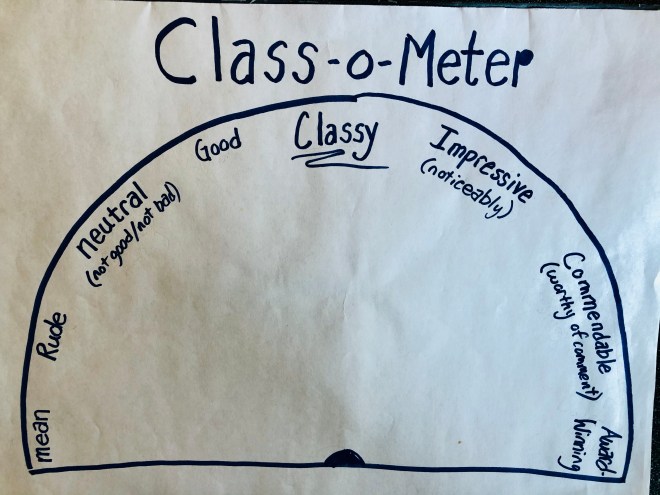 Class-o-Meter
mean
Rude
neutral
(not good/not bad)
Good
Classy
Impressive
(noticeably)
Commendable
(worthy of comment)
Award-
Winning